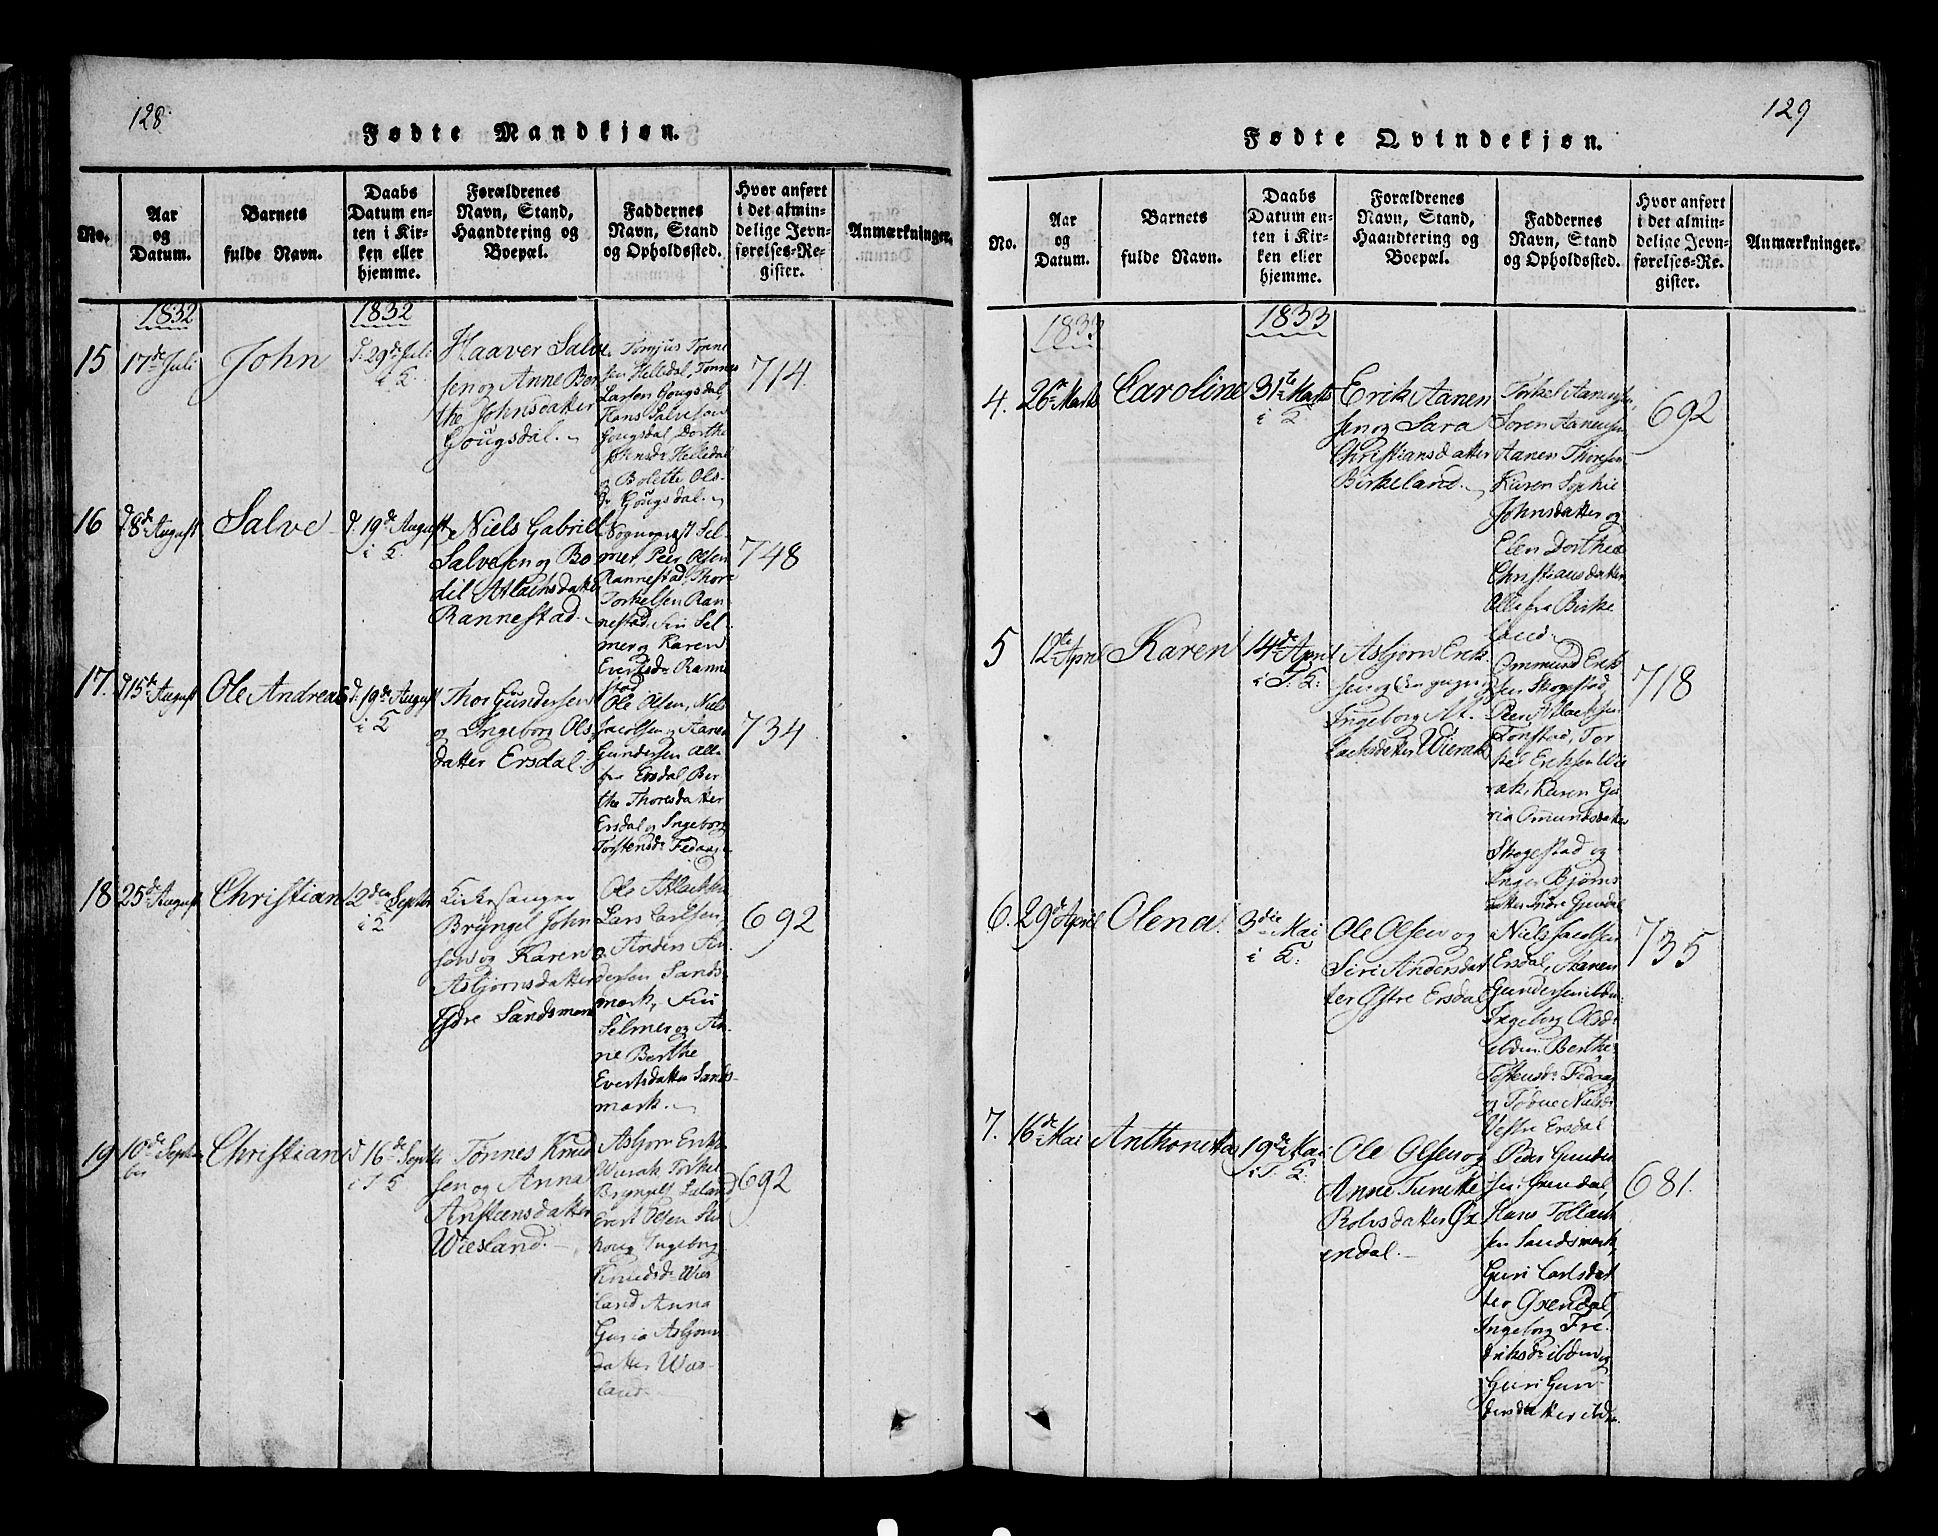 128.
Fødte Mandkjøn.
No.
Aar
og
Datum.
Barnets
fulde Navn.
Daabs
Datum en-
ten i Kir-
ken eller
hjemme.
Forældrenes
Navn, Stand,
Haandtering og
Boepæl.
Faddernes
Navn, Stand
og Opholdssted.
Hvor anført
i det almin-
delige Jevn-
førelses-Re-
gister.
Anmærkninger.
1832
1832
15
17de Juli
John
d. 29de Juli
i K.
Haaver Salve
sen og Anne Bor
the Johnsdatter
Gougsdal.
Tønne
sen Helledal, Tønnes
Larsen Gougsdal,
Hans Salvesen
Gougsdal, Dorthe
Johnsdr Helledal
og Bolette Ols-
dr Gougsdal.
714.
16
d. 8de August
Salve
d. 19de August
i K.
Niels Gabriel
Salvesen og Bo
dil Atlachsdatter
Rannestad.
Sognepræst Sel-
mer, Peer Olsen
Rannestad, Thore
Torkelsen Ran-
nestad, Siri Sel-
mer og Karen
Evertsdr Ranne
stad
748
17.
d. 15de August
Ole Andreas
d. 19de August
i K
Thor Gundersen
og Ingeborg Ols
datter Ersdal.
Ole Olsen, Niels
Jacobsen og Aanen
Gundersen Alle
fra Ersdal, Ber
the Thoresdatter
Ersdal og Ingeborg
Torstensdr Fedaag
734
18
25de August
Christian
2den Septbr
i K
Kirkesanger
Bryngel John
sen og Karen
Asbjørnsdatter
Ydre Sandsmark
Ole Atlachsen
Lars Carlsen
og Anders An
dersen Sands-
mark, Siri
Selmer og An-
ne Berthe
Evertsdatter Sands-
mark.
692
19
10de Septem
ber
Christian
d 16de Septbr
i T K
Tønnes Knud
sen og Anna
Anstensdatter
Wiesland.
Asbjørn Eriks
Wierak Torkel
Bryngels Lland
Evert Olsen
Ingeborg
Knudsdr Wies
land Anna
Guria Asbjørns
datter Wies-
land
692
129
Fødte Qvindekjøn.
No.
Aar
og
Datum.
Barnets
fulde Navn.
Daabs
Datum en-
ten i Kir-
ken eller
hjemme.
Forældrenes
Navn, Stand,
Haandtering og
Boepæl.
Faddernes
Navn, Stand
og Opholdssted.
Hvor anført
i det almin-
delige Jevn-
førelses-Re-
gister.
Anmærkninger.
1833
1833
4.
26de Marts
Caroline
31te Marts
i K
Erik Aanen
sen og Sara
Christiansdatter
Birkeland.
Torkel Aanensen,
Soren Aanensen
Aanen Thoresen
Karen Sophie
Johnsdatter og
Elen Dorthea
Christiansdatter
Alle fra Birke
land.
692
5
12te April
Karen
14de April
i T. K.
Asbjørn Erik
sen og
Ingeborg At-
lachsdatter Wierak
Ommund Erik
sen Skogestad
Peer Atlachsen
Tonstad, Tor
kel Eriksen Wie
rak, Karen Gu
ria Omundsdatter
Skogestad og
Inger Bjørns
datter Indre Gyendal
718
6.
29de April
Olena.
3die Mai
i K.
Ole Olsen og
Siri Andersdat
ter Østre Ersdal
Niels Jacobsen
Ersdal, Aanen
Gundersen ibdm.
Ingeborg Olsdr
ibdm. Berthe
Tostensdr Fedaag
og Tødne Nielsdr
Vestre Ersdal
735
7.
16de Mai
Anthonette
19de Mai
i T. K.
Ole Olsen og
Anne Tunette
Rolvsdatter Øx
endal.
Peder Gunder
sen Øxendal,
Hans Tollach
sen Sandsmark,
Guri Carlsdat
ter Øxendal,
Ingeborg Fre-
driksdr ibdm og
Guri Gun-
dersdatter ibdm.
681.